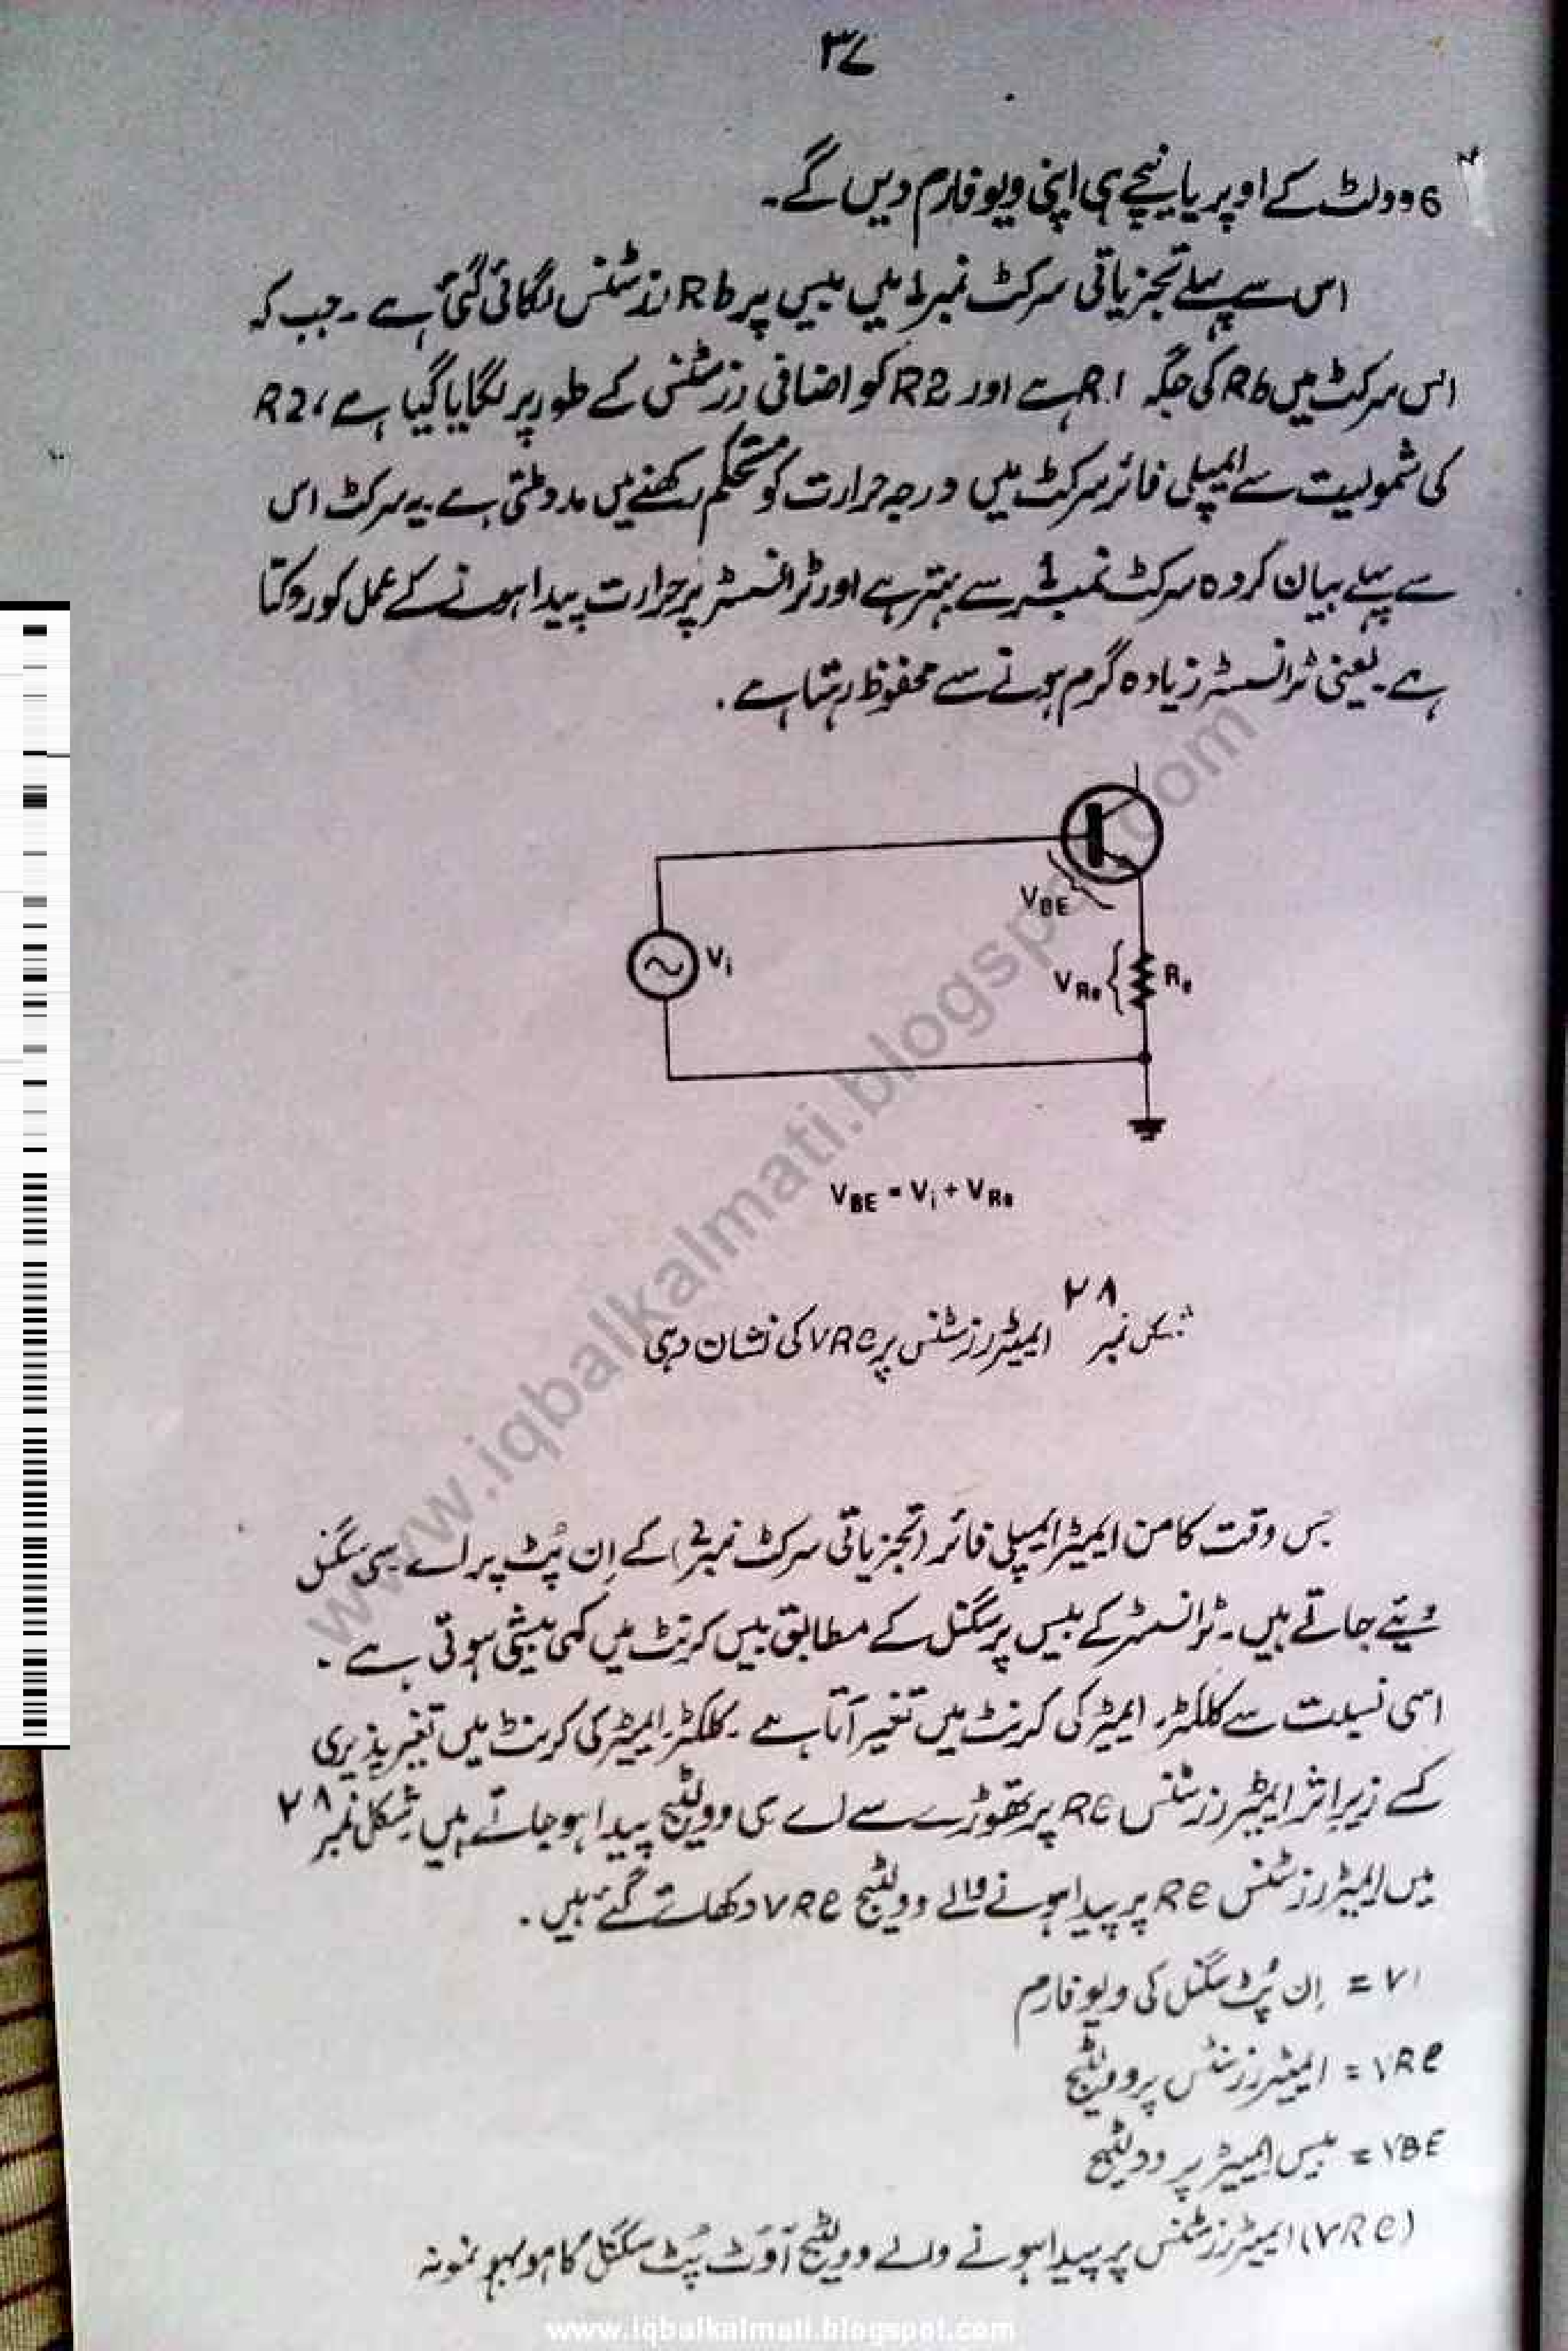 ۳۷
6 وولٹ کے اوپر یا نیچے ہی اپنی ویو فارم دیں گے۔
اس سے پہلے تجزیاتی سرکٹ نمبر 1 میں بیس پر Rb رزسٹنس لگائی گئی ہے ۔ جب کہ
اس سرکٹ میں Rb کی جگہ R.1 ہے اور R2 کو اضافی رزسٹنس کے طور پر لگایا گیا ہے ، R2
کی شمولیت سے ایمپلی فائر سرکٹ میں درجہ حرارت کو مستحکم رکھنے میں مدد ملتی ہے ۔ یہ سرکٹ اس
سے پہلے بیان کردہ سرکٹ نمبر 1 سے بہتر ہے اور ٹرانسسٹر پر حرارت پیدا ہونے کے عمل کو روکتا
ہے ۔ یعنی ٹرانسسٹر زیادہ گرم ہونے سے محفوظ رہتا ہے .
VBE
Vi
VRe
Re
VBE = Vi + VRe
شکل نمبر ۲۸ ایمیٹر رزسٹنس پر VRe کی نشان دہی
جس وقت کامن ایمیٹر ایمپلی فائر (تجزیاتی سرکٹ نمبر 2) کے اِن پُٹ پر اے سی سگنل
دیئے جاتے ہیں ۔ ٹرانسسٹر کے بیس پر سگنل کے مطابق بیس کرنٹ میں کمی بیشی ہوتی ہے .
اسی نسبت سے کلکٹر، ایمیٹر کی کرنٹ میں تغیر آتا ہے ۔ کلکٹر ایمیٹر کی کرنٹ میں تغیر پذیری
کے زیر اثر ایمیٹر رزسٹنس Re پر تھوڑے سے اے سی وولٹیج پیدا ہو جاتے ہیں ۔ شکل نمبر ۲۸
میں ایمیٹر رزسٹنس Re پر پیدا ہونے والے وولٹیج VRe دکھائے گئے ہیں .
Vi = اِن پُٹ سگنل کی ویو فارم
VRe = ایمیٹر رزسٹنس پر وولٹیج
VBE = بیس ایمیٹر پر وولٹیج
(VRe) ایمیٹر رزسٹنس پر پیدا ہونے والے وولٹیج آوٹ پُٹ سگنل کا ہو بہو نمونہ
www.iqbalkalmati.blogspot.com
www.iqbalkalmati.blogspot.com